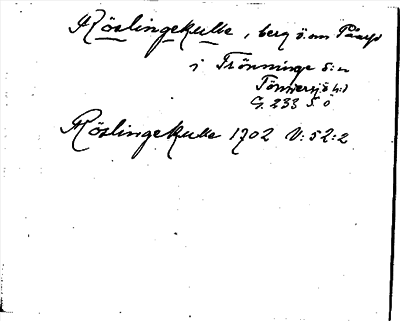 Röslingekulle, berg ö.om Påarp
i Trönninge s:n
Tönnersjö h:d
G. 233 S ö
Röslingekulle 1702 V: 52:2